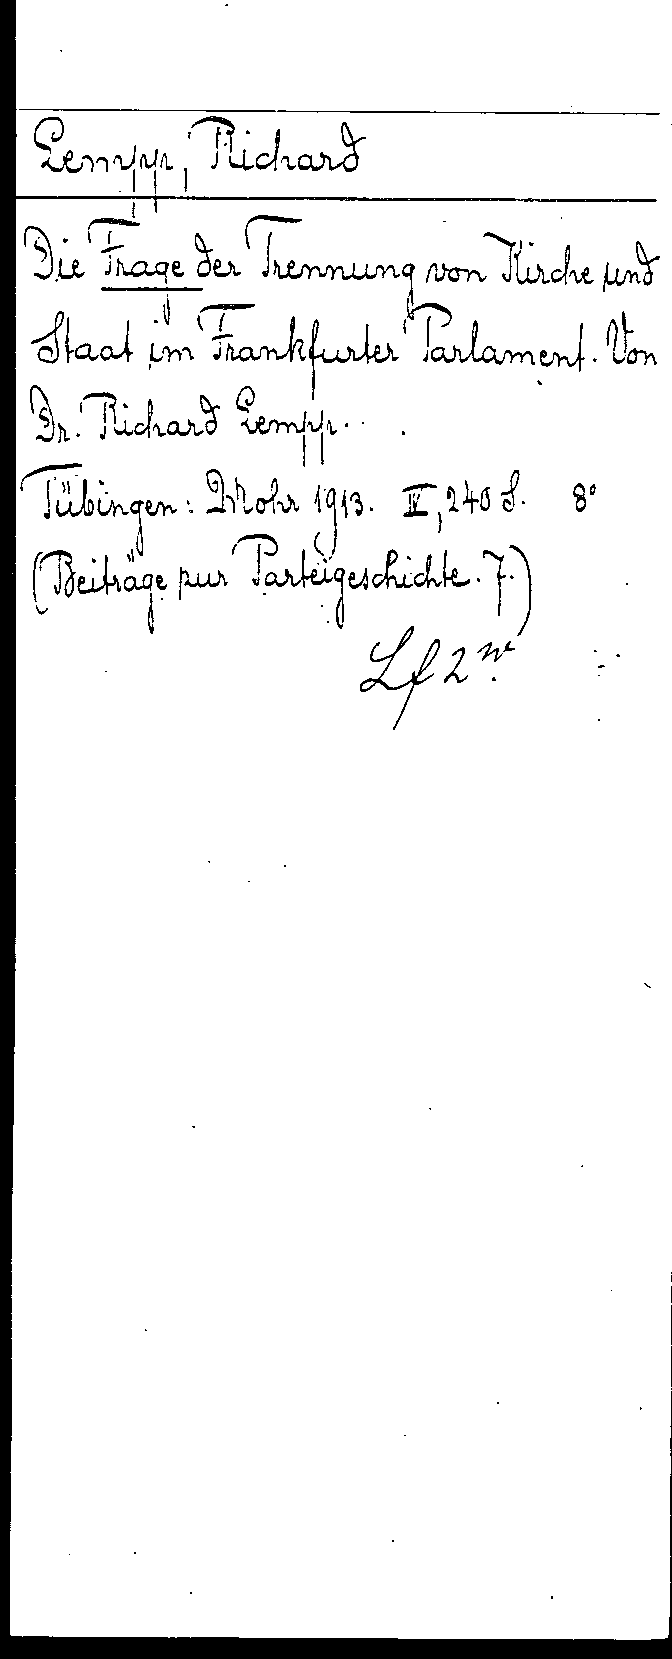 Lempp, Richard
Die Frage der Trennung von Kirche und
Staat im Frankfurter Parlament. Von
Dr. Richard Lempp...
Tübingen: Mohr 1913. IV, 240 S. 8°
(Beiträge zur Parteigeschichte. 7.)
Lf 2